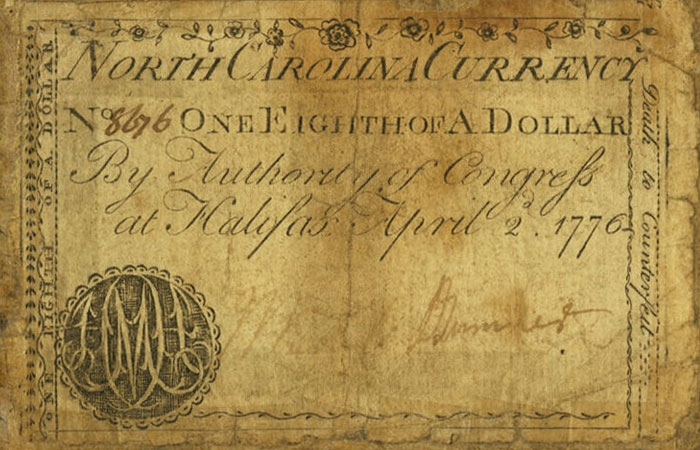 NORTH CAROLINA CURRENCY
No. 8676 ONE EIGHTH OF A DOLLAR
By Authority of Congreſs
at Halifax April 2d. 1776
ONE EIGHTH OF A DOLLAR
Death to Counterfeit